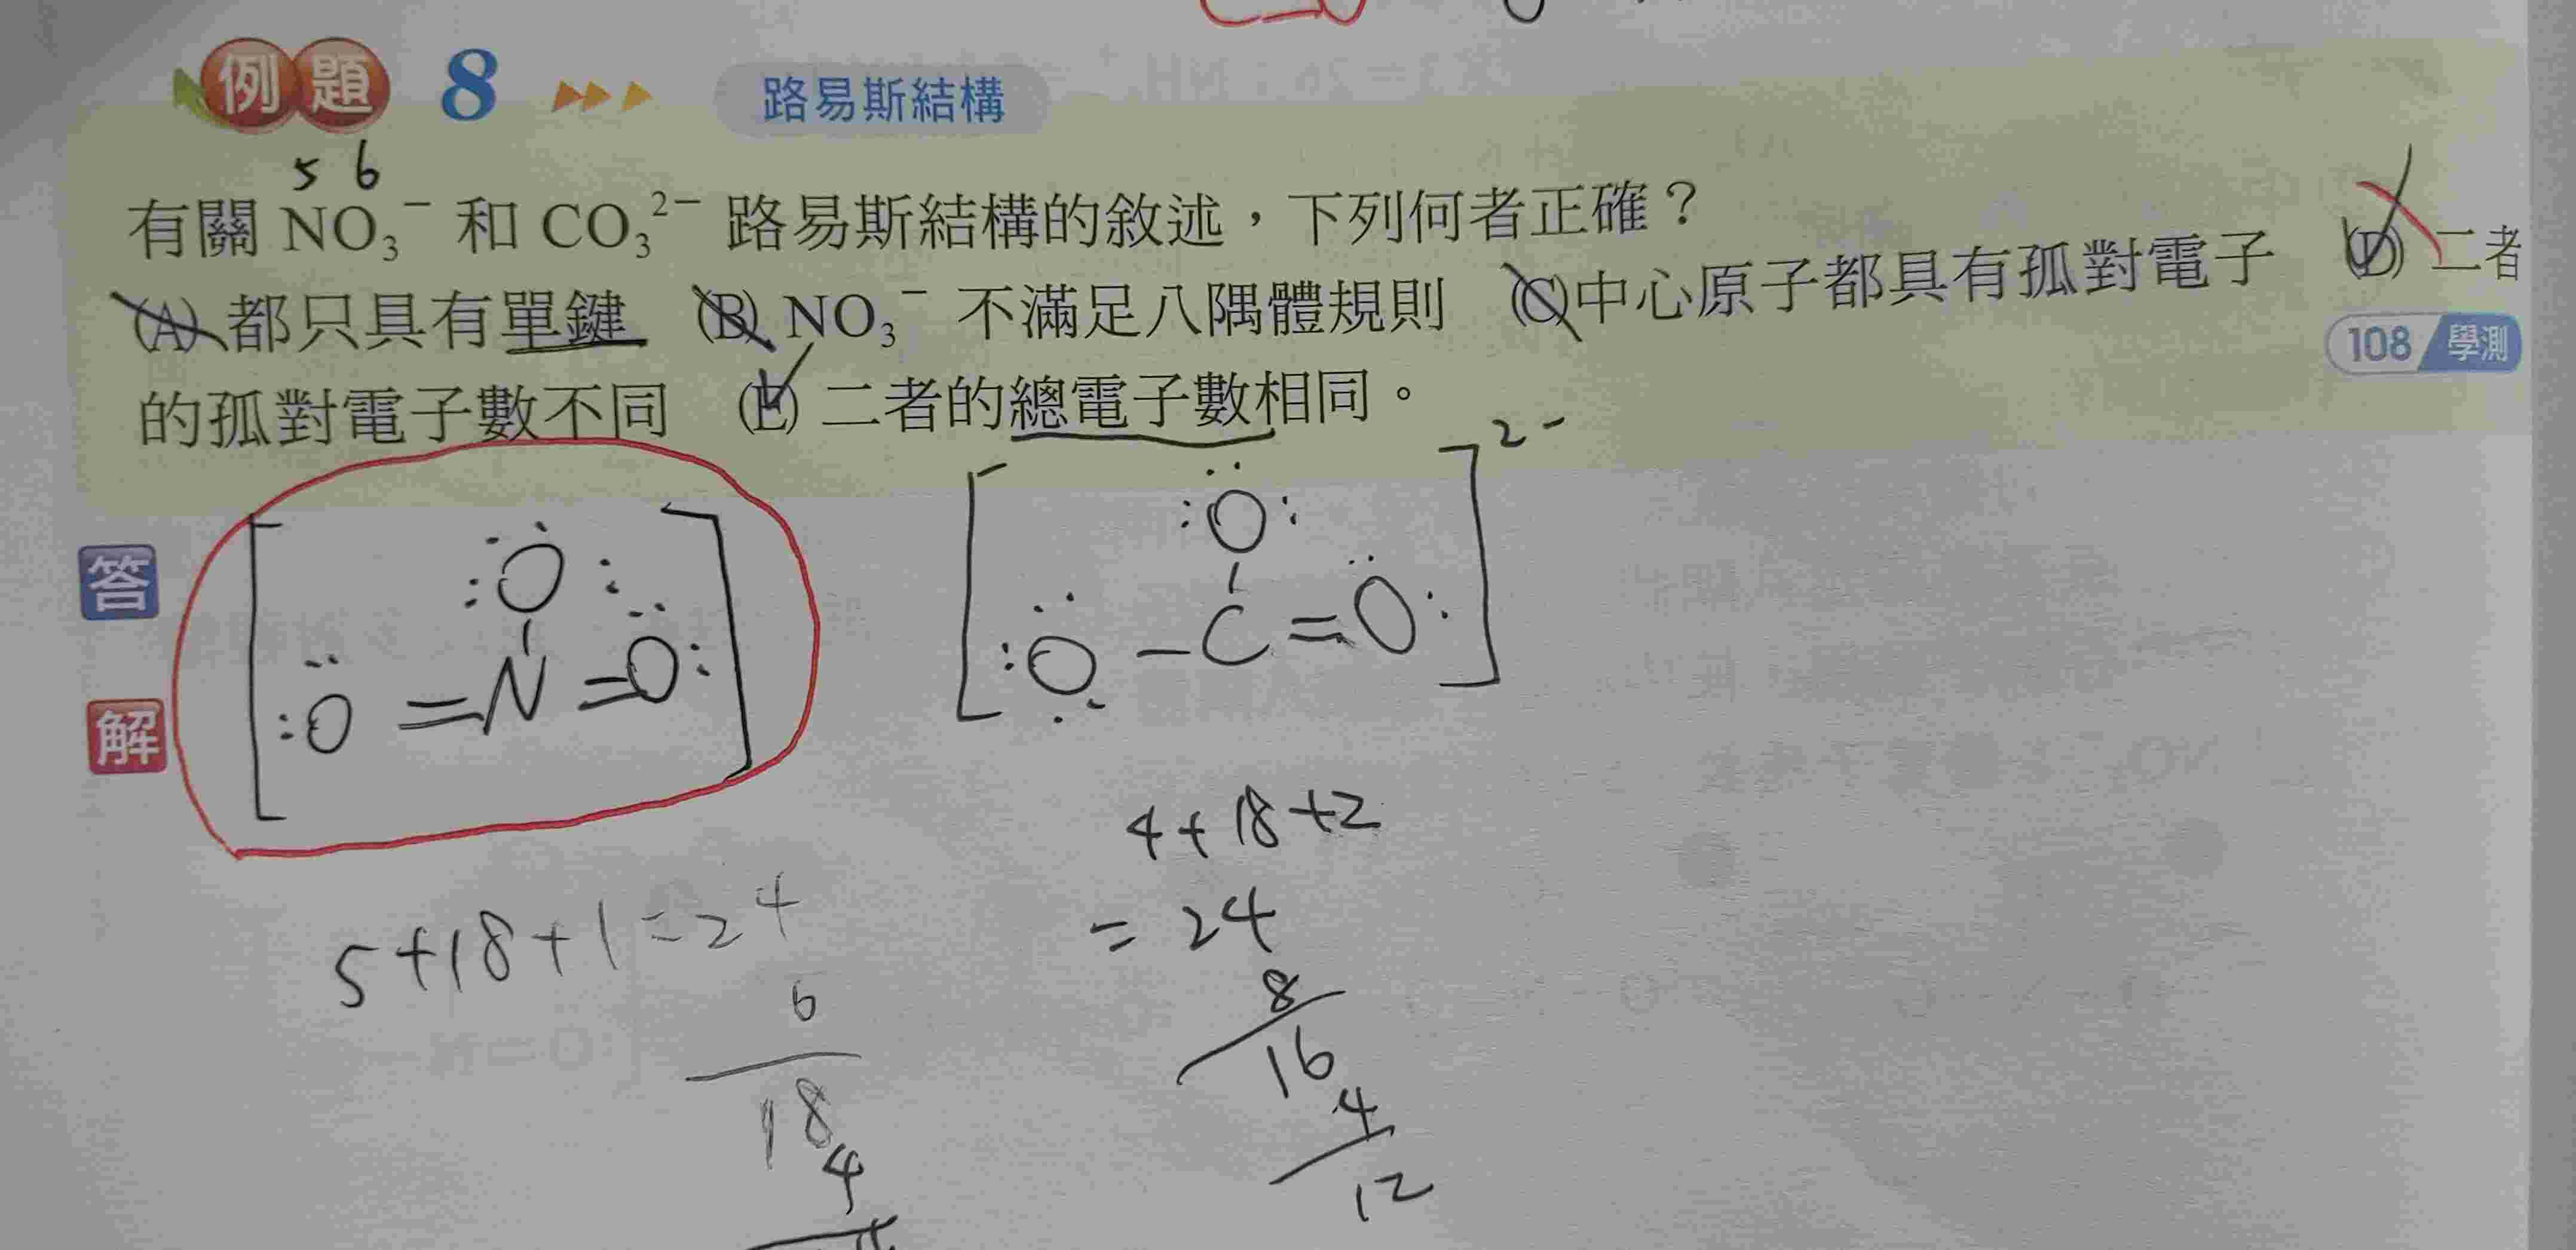 例題 8 路易斯結構
5 6
有關 NO₃⁻ 和 CO₃²⁻ 路易斯結構的敘述，下列何者正確？
(A) 都只具有單鍵 (B) NO₃⁻ 不滿足八隅體規則 (C) 中心原子都具有孤對電子 (D) 二者
的孤對電子數不同 (E) 二者的總電子數相同。
108 學測
答
解
O
O = N = O
2-
O
O - C = O
5+18+1=24
6
18
4
4+18+2
= 24
8
16
4
12